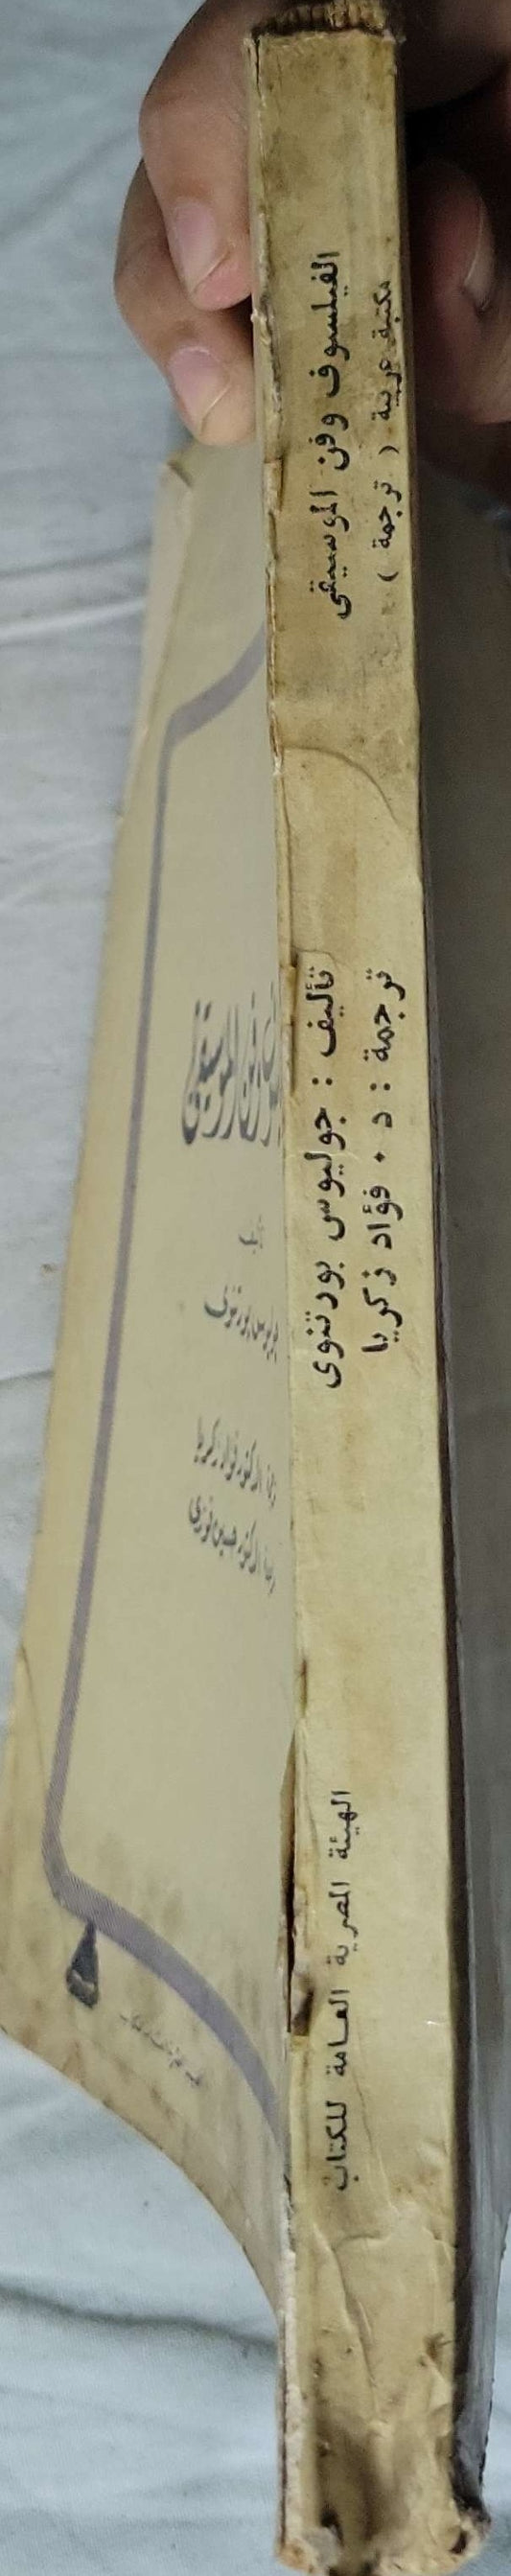 الفيلسوف وفن الموسيقى
مكتبة عربية ( ترجمة )
تأليف : جوليوس بورتنوى
ترجمة : د . فؤاد زكريا
الهيئة المصرية العامة للكتاب
وفن الموسيقى
تأليف
جوليوس بورتنوى
الدكتور فؤاد زكريا
الدكتور حسين فوزى